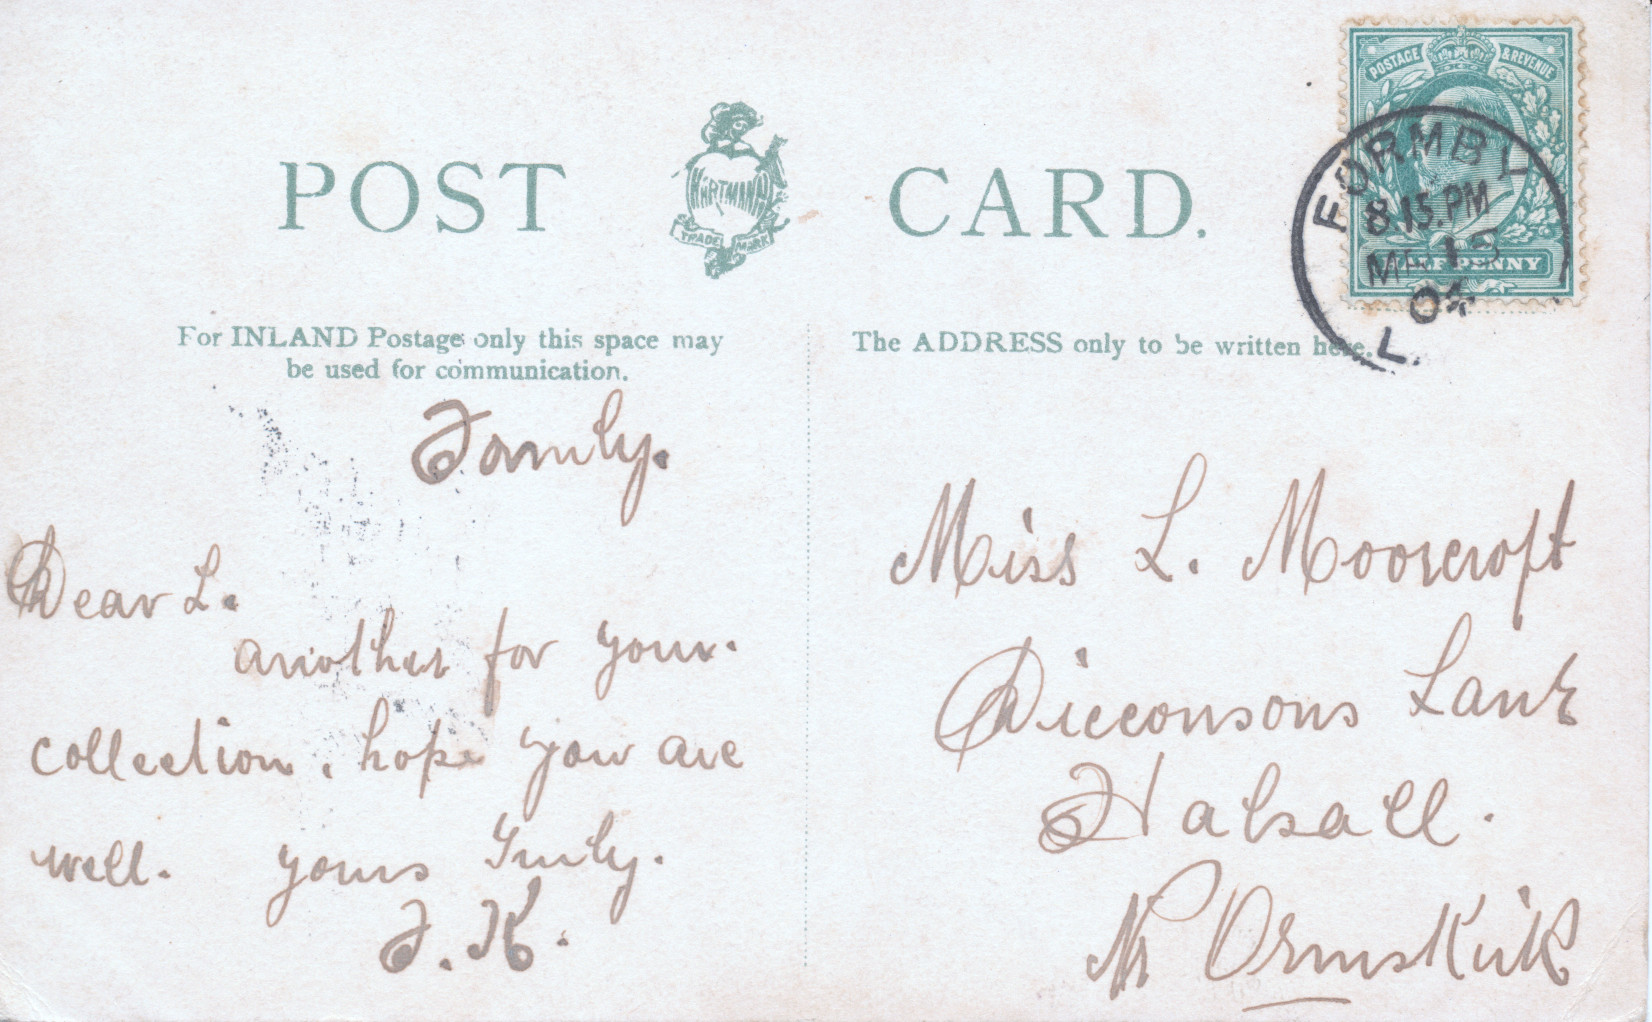 POSTAGE & REVENUE
HALFPENNY
FORMBY
8.15.PM
MR 15
04
L.
POST CARD.
HARTMANN
TRADE MARK
For INLAND Postage only this space may
be used for communication.
The ADDRESS only to be written here.
Dear L.
another for your
collection. hope you are
well. yours Truly.
J. K.
Miss L. Moorcroft
Dicconsons Lane
Halsall.
Nr Ormskirk